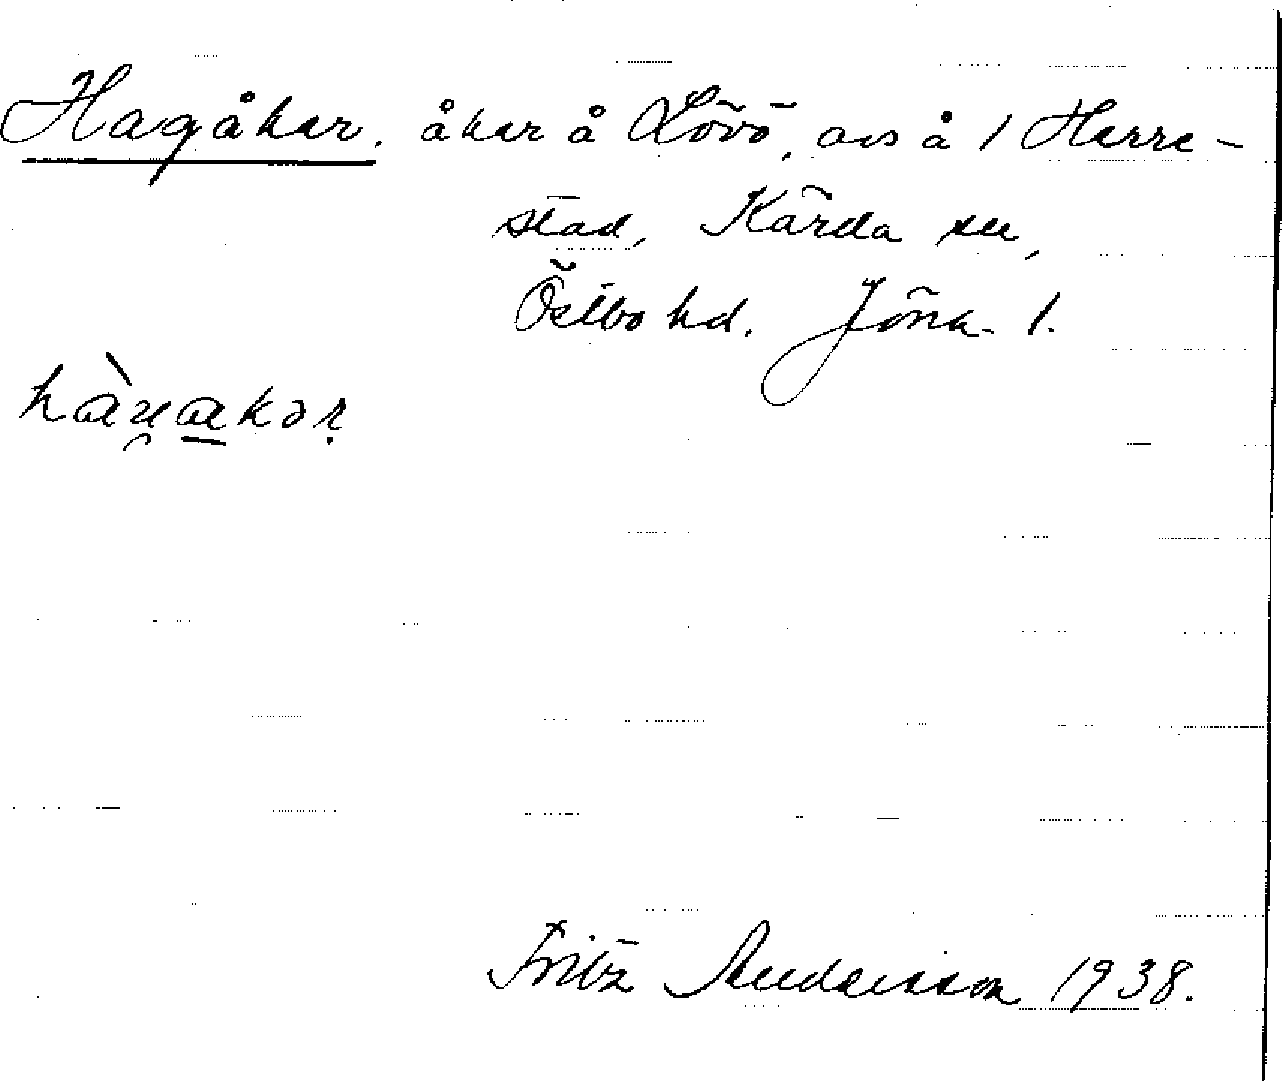 Hagåker. åker å Lövö, avs å 1 Herre-
stad, Kärda sn,
Östbo hd. Jönk. l.
Fritz Andersson 1938.